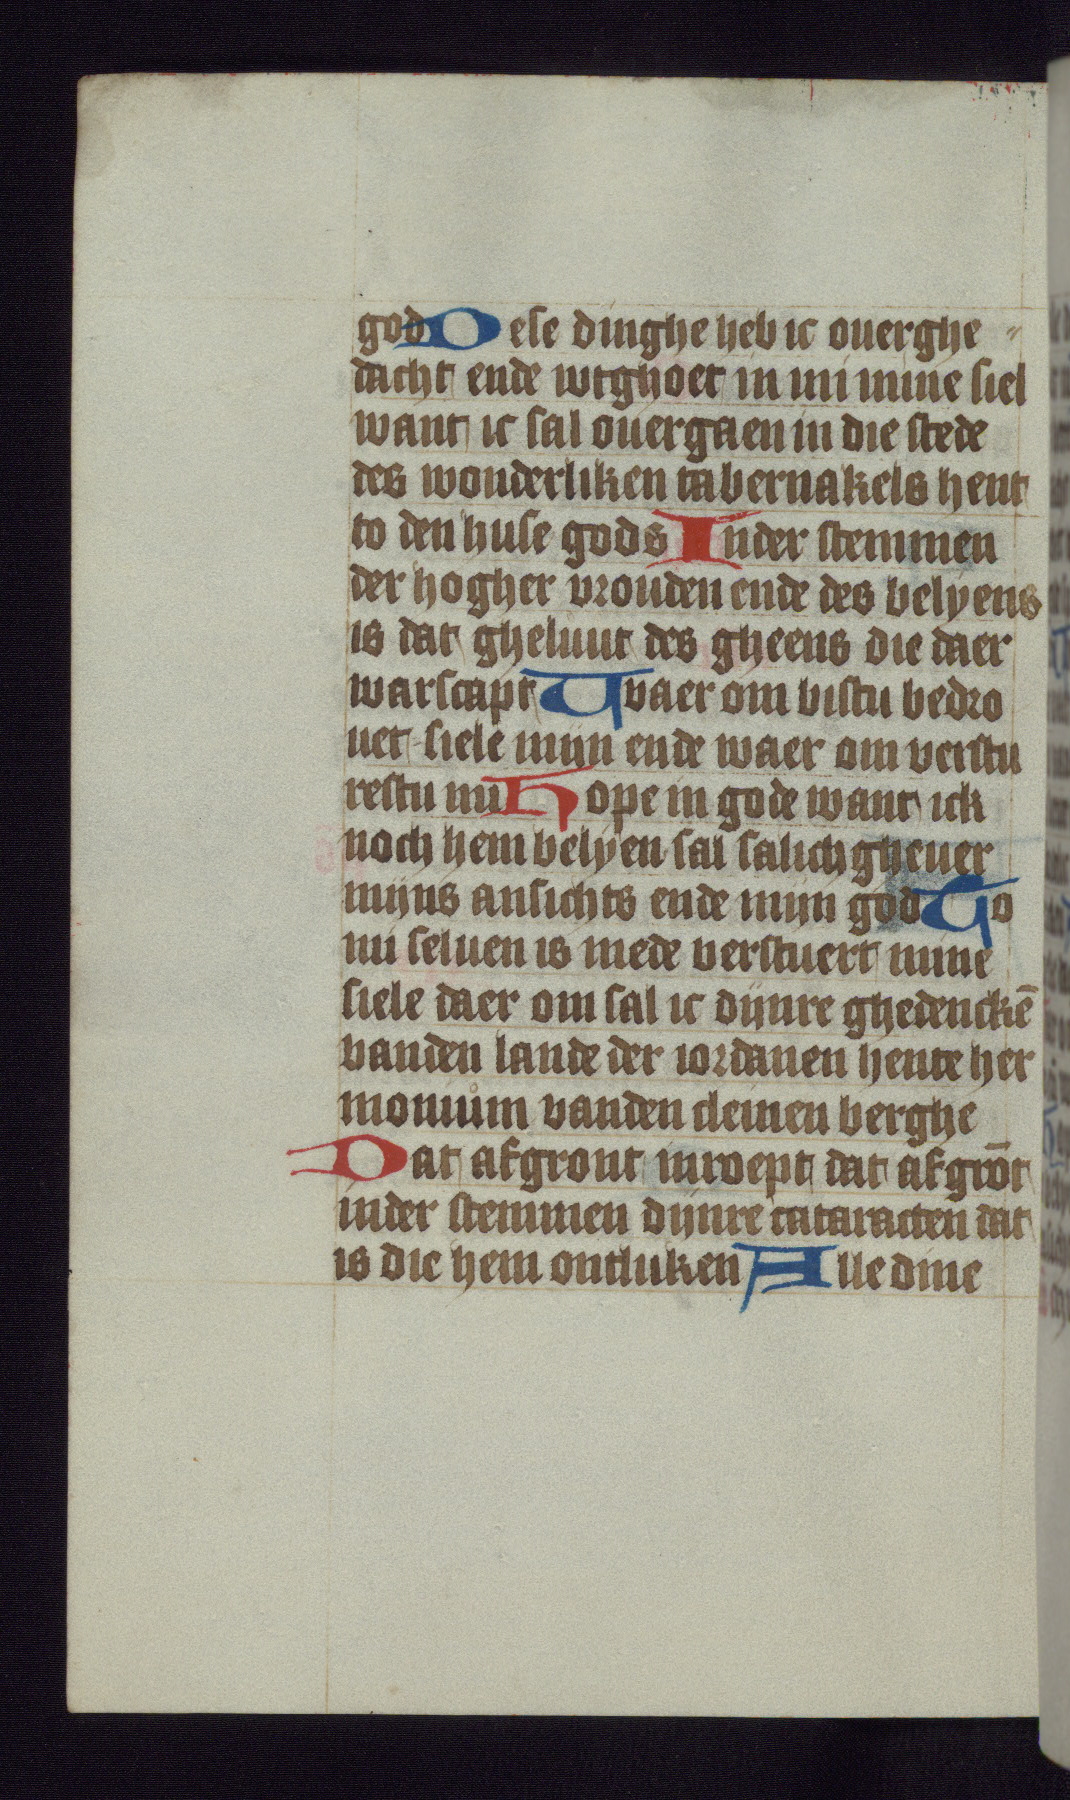 god Dese dinghe heb ic ouerghe
dacht ende wtghoet in mi mine siel
want ic sal ouergaen in die stede
des wonderliken tabernakels hent
to den huse gods Inder stemmen
der hogher vrouden ende des belyens
is dat gheluut des gheens die daer
warscapt Waer om bistu bedro
uet siele mijn ende waer om verstu
restu mi Hope in gode want ick
noch hem belyen sal salichgheuer
mijns ansichts ende mijn god To
mi seluen is mede verstuert mine
siele daer om sal ic dijnre ghedenckē
vanden lande der iordanen hente her
monium vanden cleinen berghe
Dat afgront inroept dat afgrōt
inder stemmen dijnre cataracten dat
is die hem ontluken Alle dine